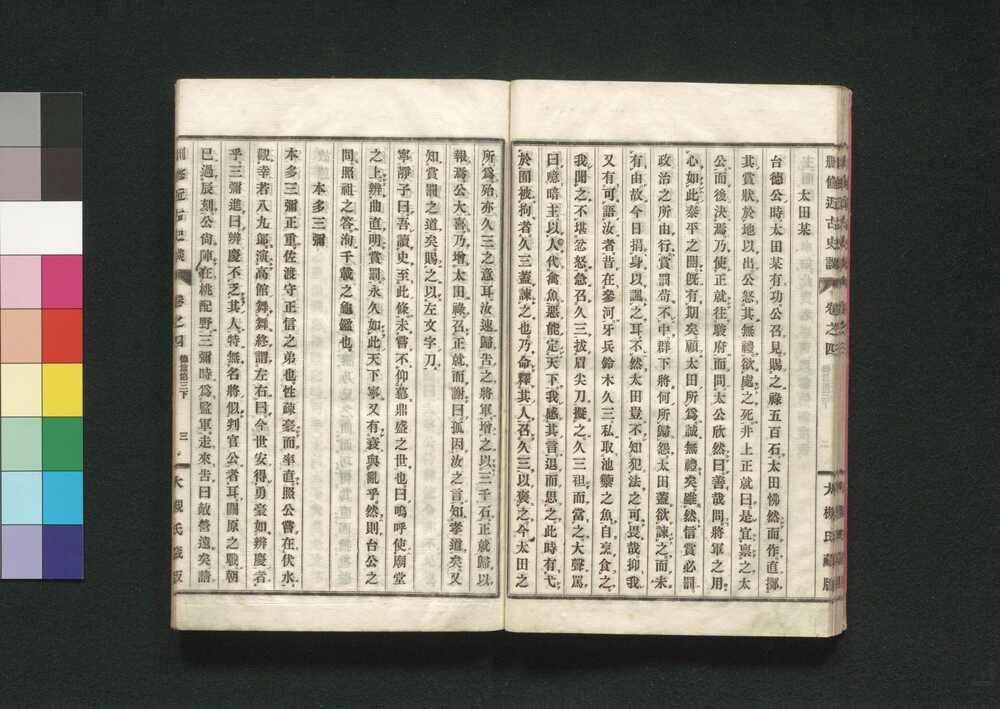 刪修近古史談 卷之四 大槻氏藏版
太田某
台德公時太田某有功公召見賜之祿五百石太田怫然而作直擲
其賞狀於地以出公怒其無禮欲處之死井上正就曰是宜稟之太
公而後決焉乃使正就往駿府而問太公欣然曰善哉問將軍之用
心如此泰平之閉既有期矣顧太田所爲誠無禮矣雖然信賞必罰
政治之所由行賞罰苟不中群下將何所歸怨太田蓋欲諫之而未
有由故今日捐身以諷之耳不然太田豈不知犯法之可畏哉抑我
又有可語汝者昔在參河牙兵鈴木久三私取池籞之魚自烹食之
我聞之不堪忿怒急召久三拔眉尖刀擬之久三袒而當之大聲罵
曰噫暗主以人代禽魚惡能定天下我感其言退而思之此時有弋
於囿被拘者久三蓋諫之也乃命釋其人召久三以褒之今太田之
所爲殆亦久三之意耳汝速歸告之將軍增之以三千石正就歸以
報焉公大喜乃增太田祿召正就而謝曰孤因汝之言知孝道矣又
知賞罰之道矣賜之以左文字刀
寧靜子曰吾讀史至此條未嘗不仰慕鼎盛之世也曰嗚呼使廟堂
之上辨曲直明賞罰永久如此天下寧又有衰與亂乎然則台公之
問照祖之答洵千載之龜鑑也
本多三彌
本多三彌正重佐渡守正信之弟也性疎豪而率直照公嘗在伏水
觀幸若八九郎演高館舞舞終謂左右曰今世安得勇豪如辨慶者
乎三彌進曰辨慶不乏其人特無名將似判官公者耳關原之戰朝
已過辰刻公尙陣在桃配野三彌時爲監軍走來告曰敵營遠矣請
刪修近古史談 卷之四 德篇第三下 三 大槻氏藏版